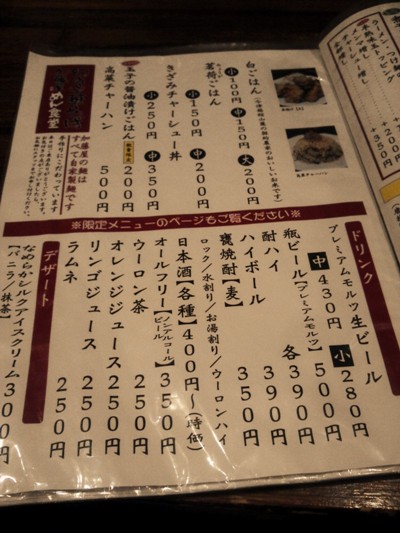 ラーメン・つけ
白ごはん
小 100円 中 150円 大 200円
茗荷ごはん
小 150円 中 200円
きざみチャーシュー丼
小 250円 中 350円
玉子の醤油漬けごはん
200円
高菜チャーハン
500円
めし食堂
加藤屋の麺は
すべて自家製麺です
※限定メニューのページもご覧ください※
ドリンク
プレミアムモルツ生ビール
中 430円 小 280円
瓶ビール【プレミアムモルツ】
500円
酎ハイ
各 390円
ハイボール
390円
甕焼酎【麦】
350円
ロック/水割り/お湯割り/ウーロンハイ
日本酒【各種】400円~(時価)
オールフリー【ノンアルコールビール】
350円
ウーロン茶
250円
オレンジジュース
250円
リンゴジュース
250円
ラムネ
250円
デザート
なめらかシルクアイスクリーム300円
【バニラ/抹茶】